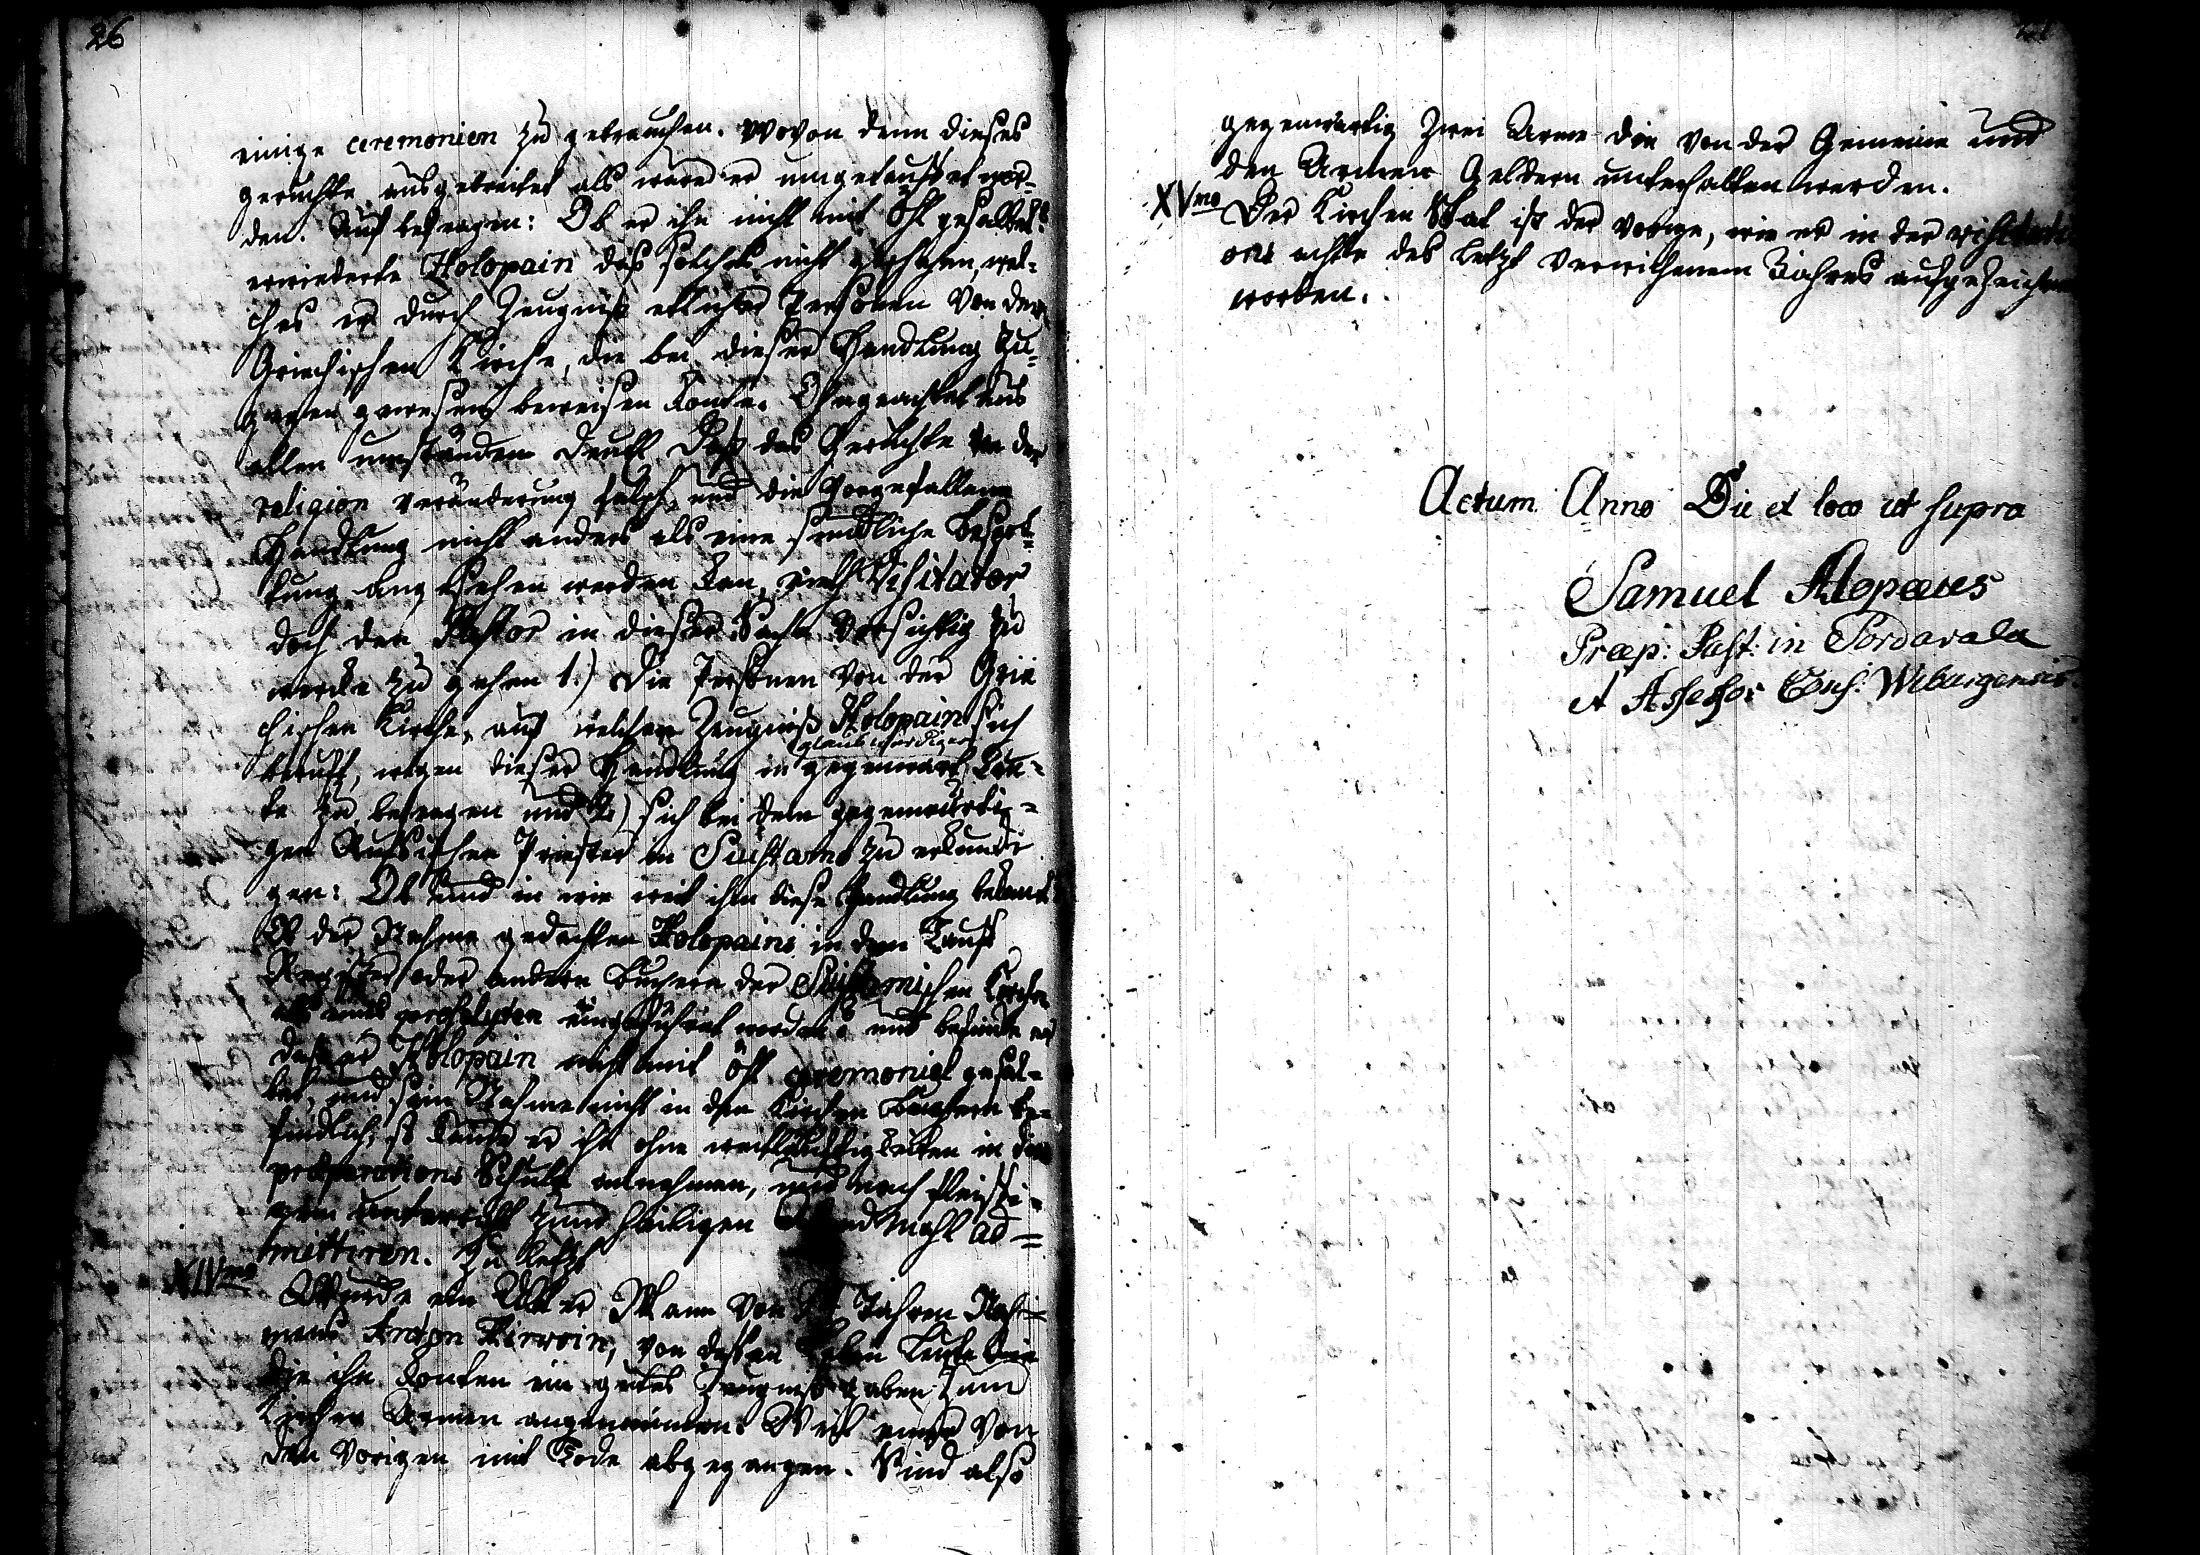 26
einige ceremonien zu gebrauchen. Wovon denn dieses
geruchte ausgebreitet als wäre er umgetauffet wor-
den. Auf befragen: Ob er ihn nicht mit Öhl gesalbet?
erwiederte Holopain daß solches nicht geschehen, wel-
ches er durch Zeugniß etlicher Personen von der
Griechischen Kirche, die bei dieser Handlung zu-
gegen gewesen, beweisen konte. Ohngeachtet aus
allen umständen deucht daß das Geruchte von der
religion veränderung falsch, und die vorgefallene
Handlung nicht anders als eine Bespot-
tung angesehen werden kan, rieth Visitator
doch den Pastor in dieser Sache vorsichtig zu
wercke zu gehen 1.) Die Personen von der Grie
chischen Kirche, auf welcher Zeugniß Holopain sich
beruft, wegen dieser Handlung in gegenwart glaubwürdiger Leu-
te zu befragen und 2.) sich bei dem gegenwärti-
gen Russischen Priester in Suistamo zu erkundi
gen: Ob und in wie weit ihm diese Handlung bekant
Ob der Nahme gedachten Holopains in dem Tauff
Register oder andern Büchern der Suistamischen Kirche
als eines proselyten eingeführet worden? und befinde er
daß er Holopain nicht mit Öhl ceremonial gesal-
bet, und sein Nahme nicht in den Kirchen Büchern be-
findlich, so könte er ihn ohne weitläufftigkeiten in die
præparations Schule annehmen, und nach fleissi-
gem unterricht zum heiligen Abendmahl ad-
mittiren. Zu letzt
XIVmo Wurde ein Alter Mann von Jahren Nah-
mens Anton Hirwoin, von dessen Leben Leute
die ihn konten ein gutes Zeugniß gaben zum
Kirchen Armen angenommen. Weil einer von
den vorigen mit Tode abgegangen. Sind also
gegenwärtig zwei Arme die von der Gemeine und
den Armen Geldern unterhalten werden.
XVmo Der Kirchen Stat ist der vorige, wie er in der visitati
ons achte des letzt verwichenem Jahres aufgezeichnet
worden.
Actum Anno Die et loco ut supra
Samuel Alopæus
Præp: Past: in Sordavala
et Assessor Cons: Wiburgensis.